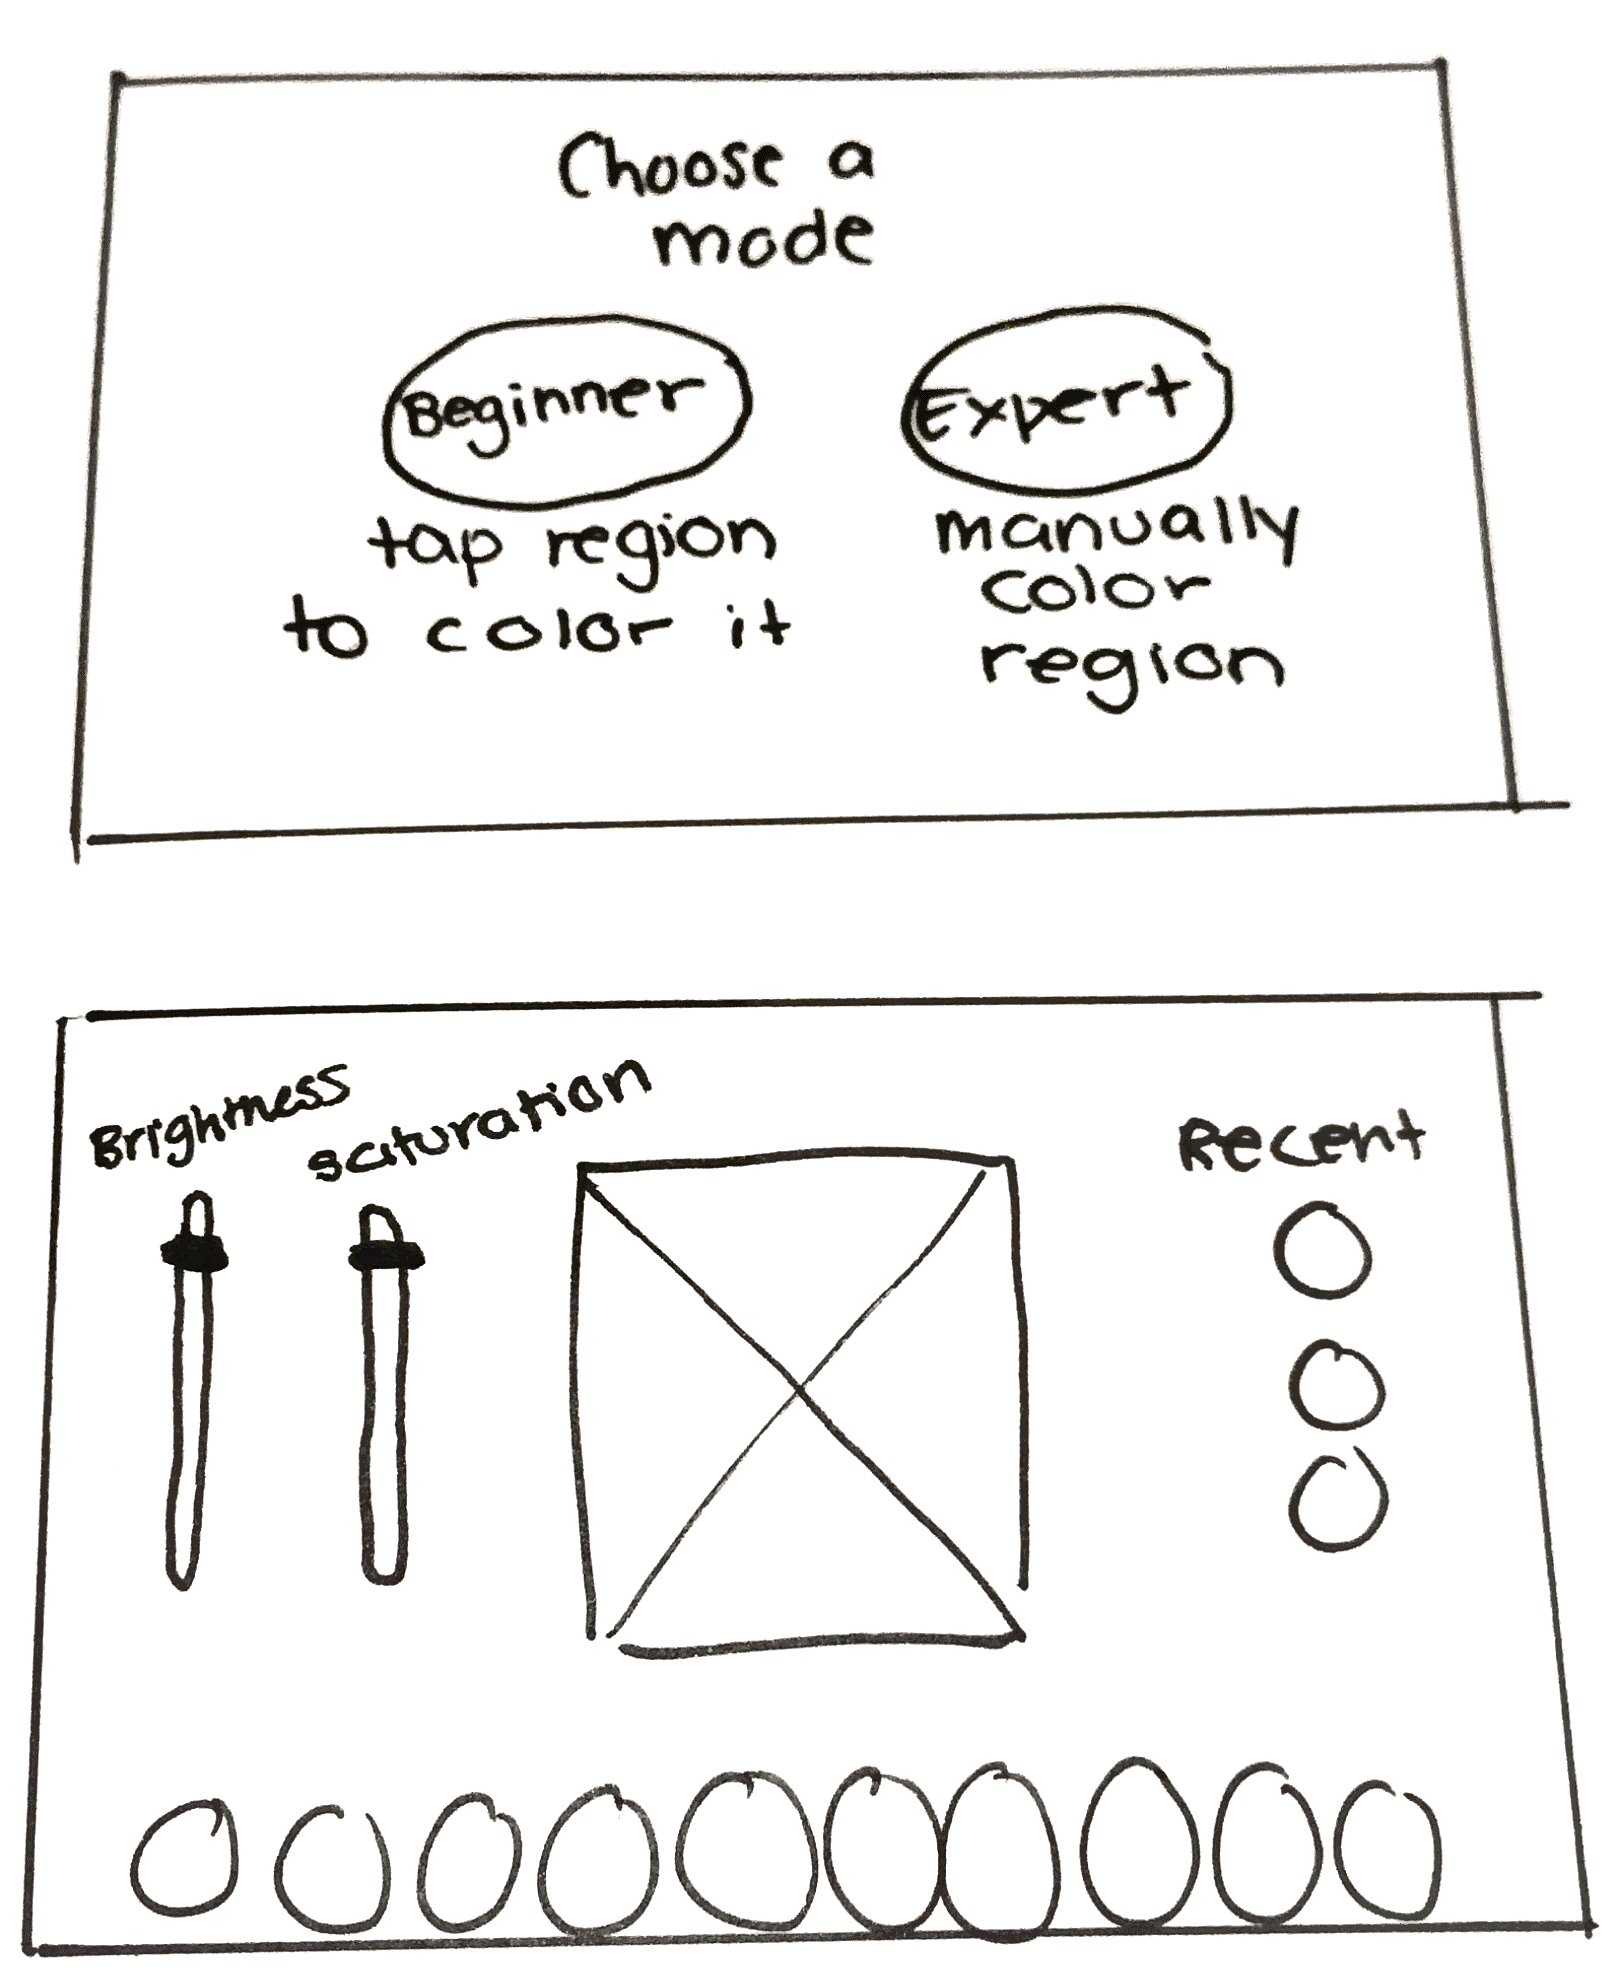 Choose a
mode
Beginner
Expert
tap region
to color it
manually
color
region
Brightness
saturation
Recent